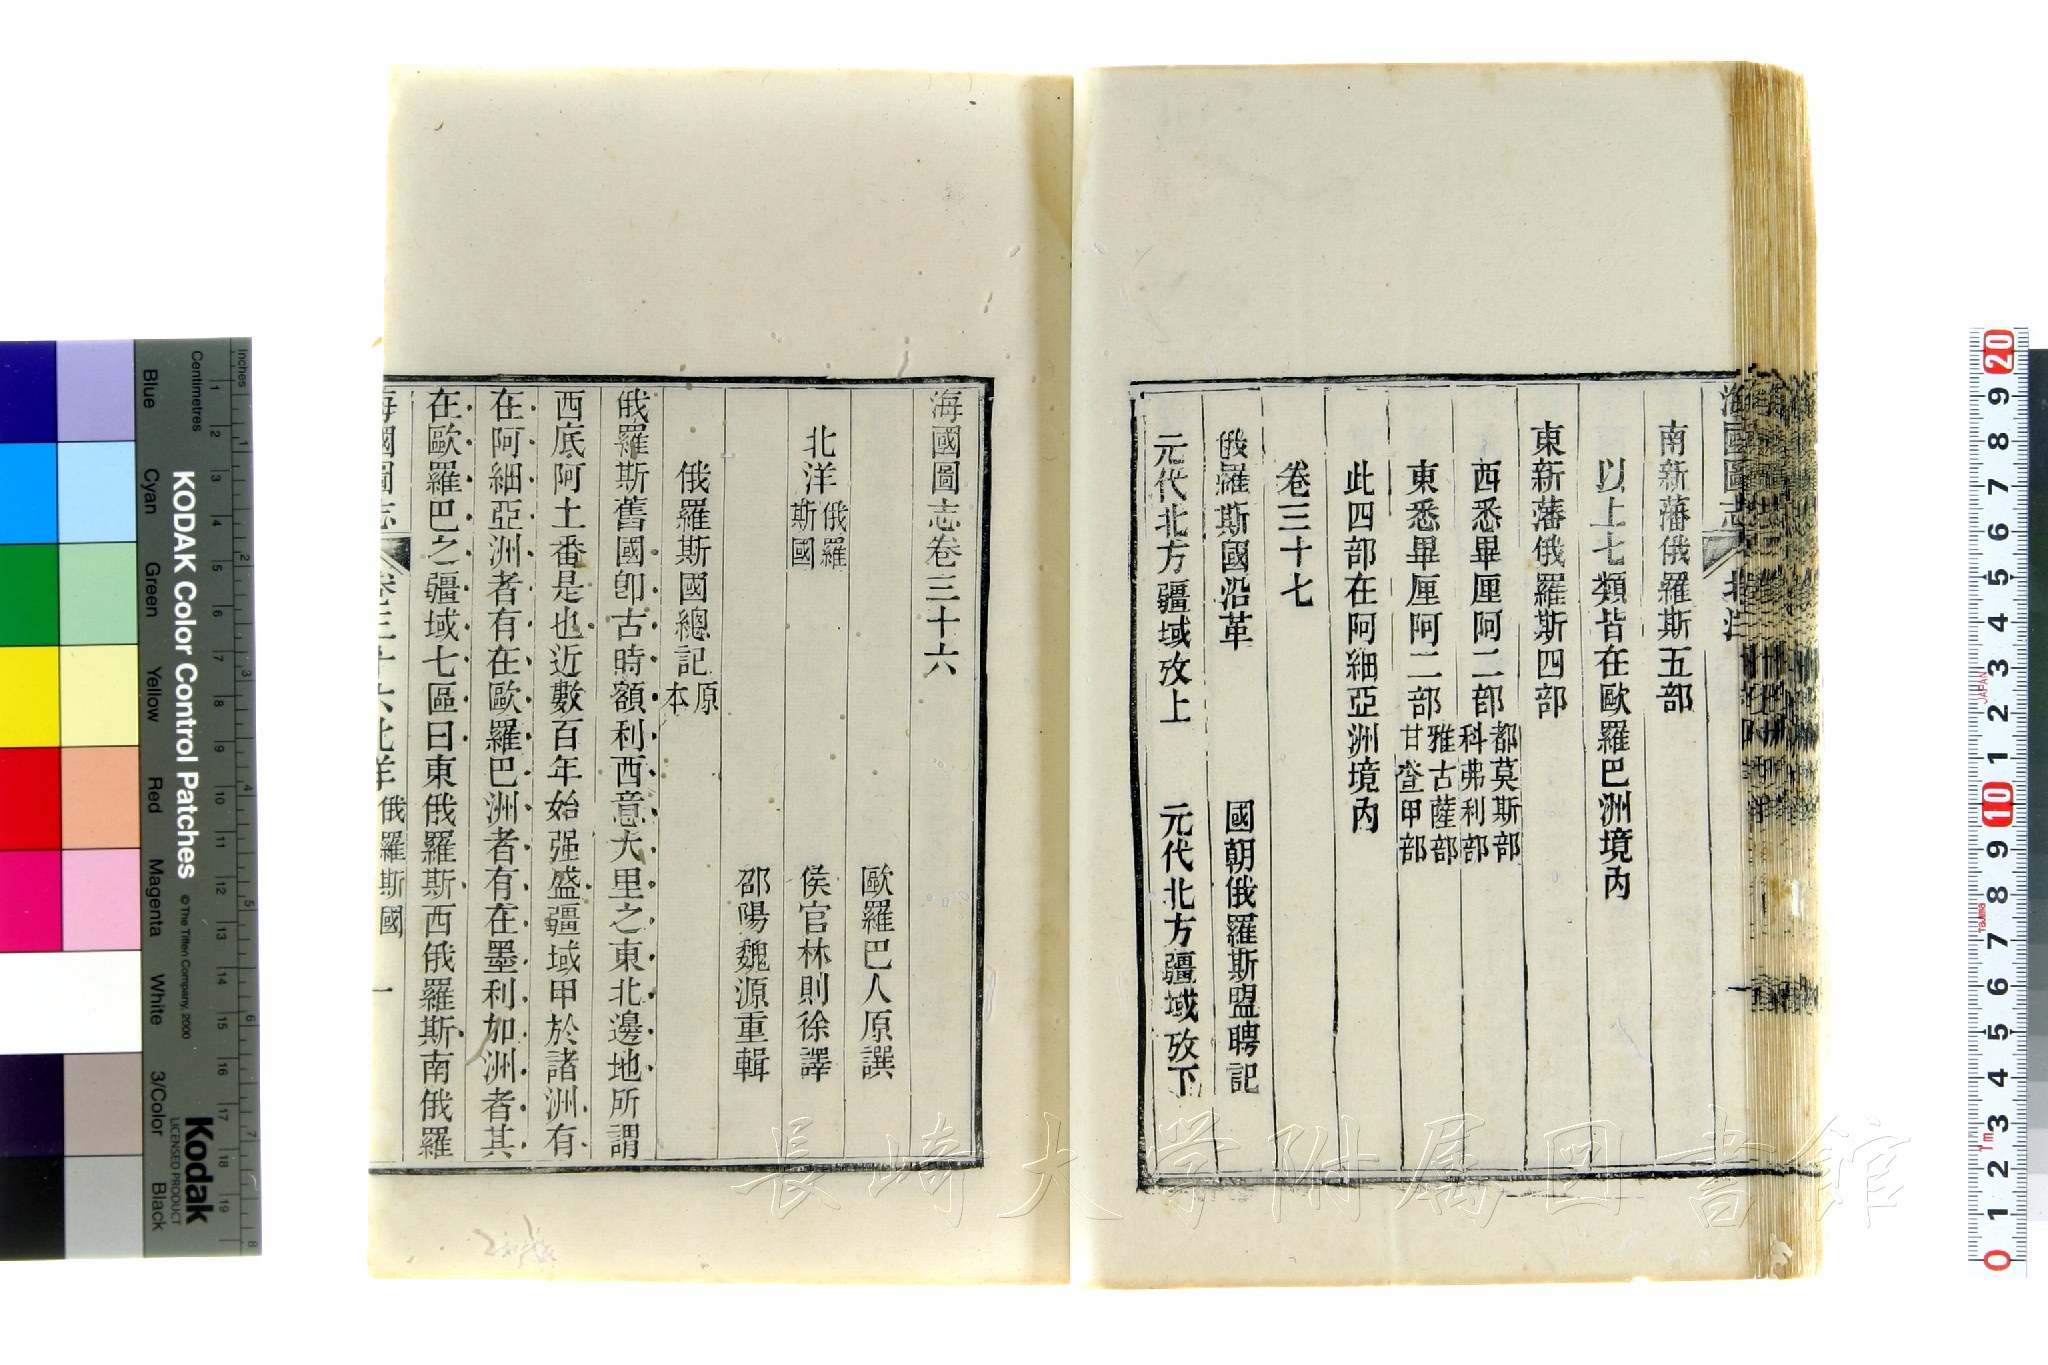 海國圖志 北洋
南新藩俄羅斯五部
以上七類皆在歐羅巴洲境內
東新藩俄羅斯四部
西悉畢厘阿二部都莫斯部科弗利部
東悉畢厘阿二部雅古薩部甘查甲部
此四部在阿細亞洲境內
卷三十七
俄羅斯國沿革 國朝俄羅斯盟聘記
元代北方疆域攷上 元代北方疆域攷下
海國圖志卷三十六
歐羅巴人原譔
北洋俄羅斯國 侯官林則徐譯
邵陽魏源重輯
俄羅斯國總記原本
俄羅斯舊國卽古時額利西意大里之東北邊地所謂
西底阿土番是也近數百年始强盛疆域甲於諸洲有
在阿細亞洲者有在歐羅巴洲者有在墨利加洲者其
在歐羅巴之疆域七區曰東俄羅斯西俄羅斯南俄羅
海國圖志 卷三十六北洋俄羅斯國 一
長崎大学附属図書館
KODAK Color Control Patches
© The Tiffen Company, 2000
Kodak
LICENSED PRODUCT
Inches
Centimetres
Blue
Cyan
Green
Yellow
Red
Magenta
White
3/Color
Black
1 2 3 4 5 6 7 8
1 2 3 4 5 6 7 8 9 10 11 12 13 14 15 16 17 18 19
20 9 8 7 6 5 4 3 2 1 10 9 8 7 6 5 4 3 2 1 0
JAPAN